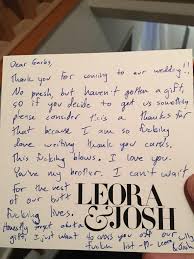 Dear Garbs,
Thank you for coming to our wedding!!
No presh, but haven't gotten a gift,
so if you decide to get us something
please consider this a thanks for
that because I am so fucking
done writing thank you cards.
This fucking blows. I love you.
You're my brother. I can't wait
for the rest
of our butt
fucking lives.
Honestly forget about a
gift, I just want to cross you off our
fucken list
LEORA
& JOSH